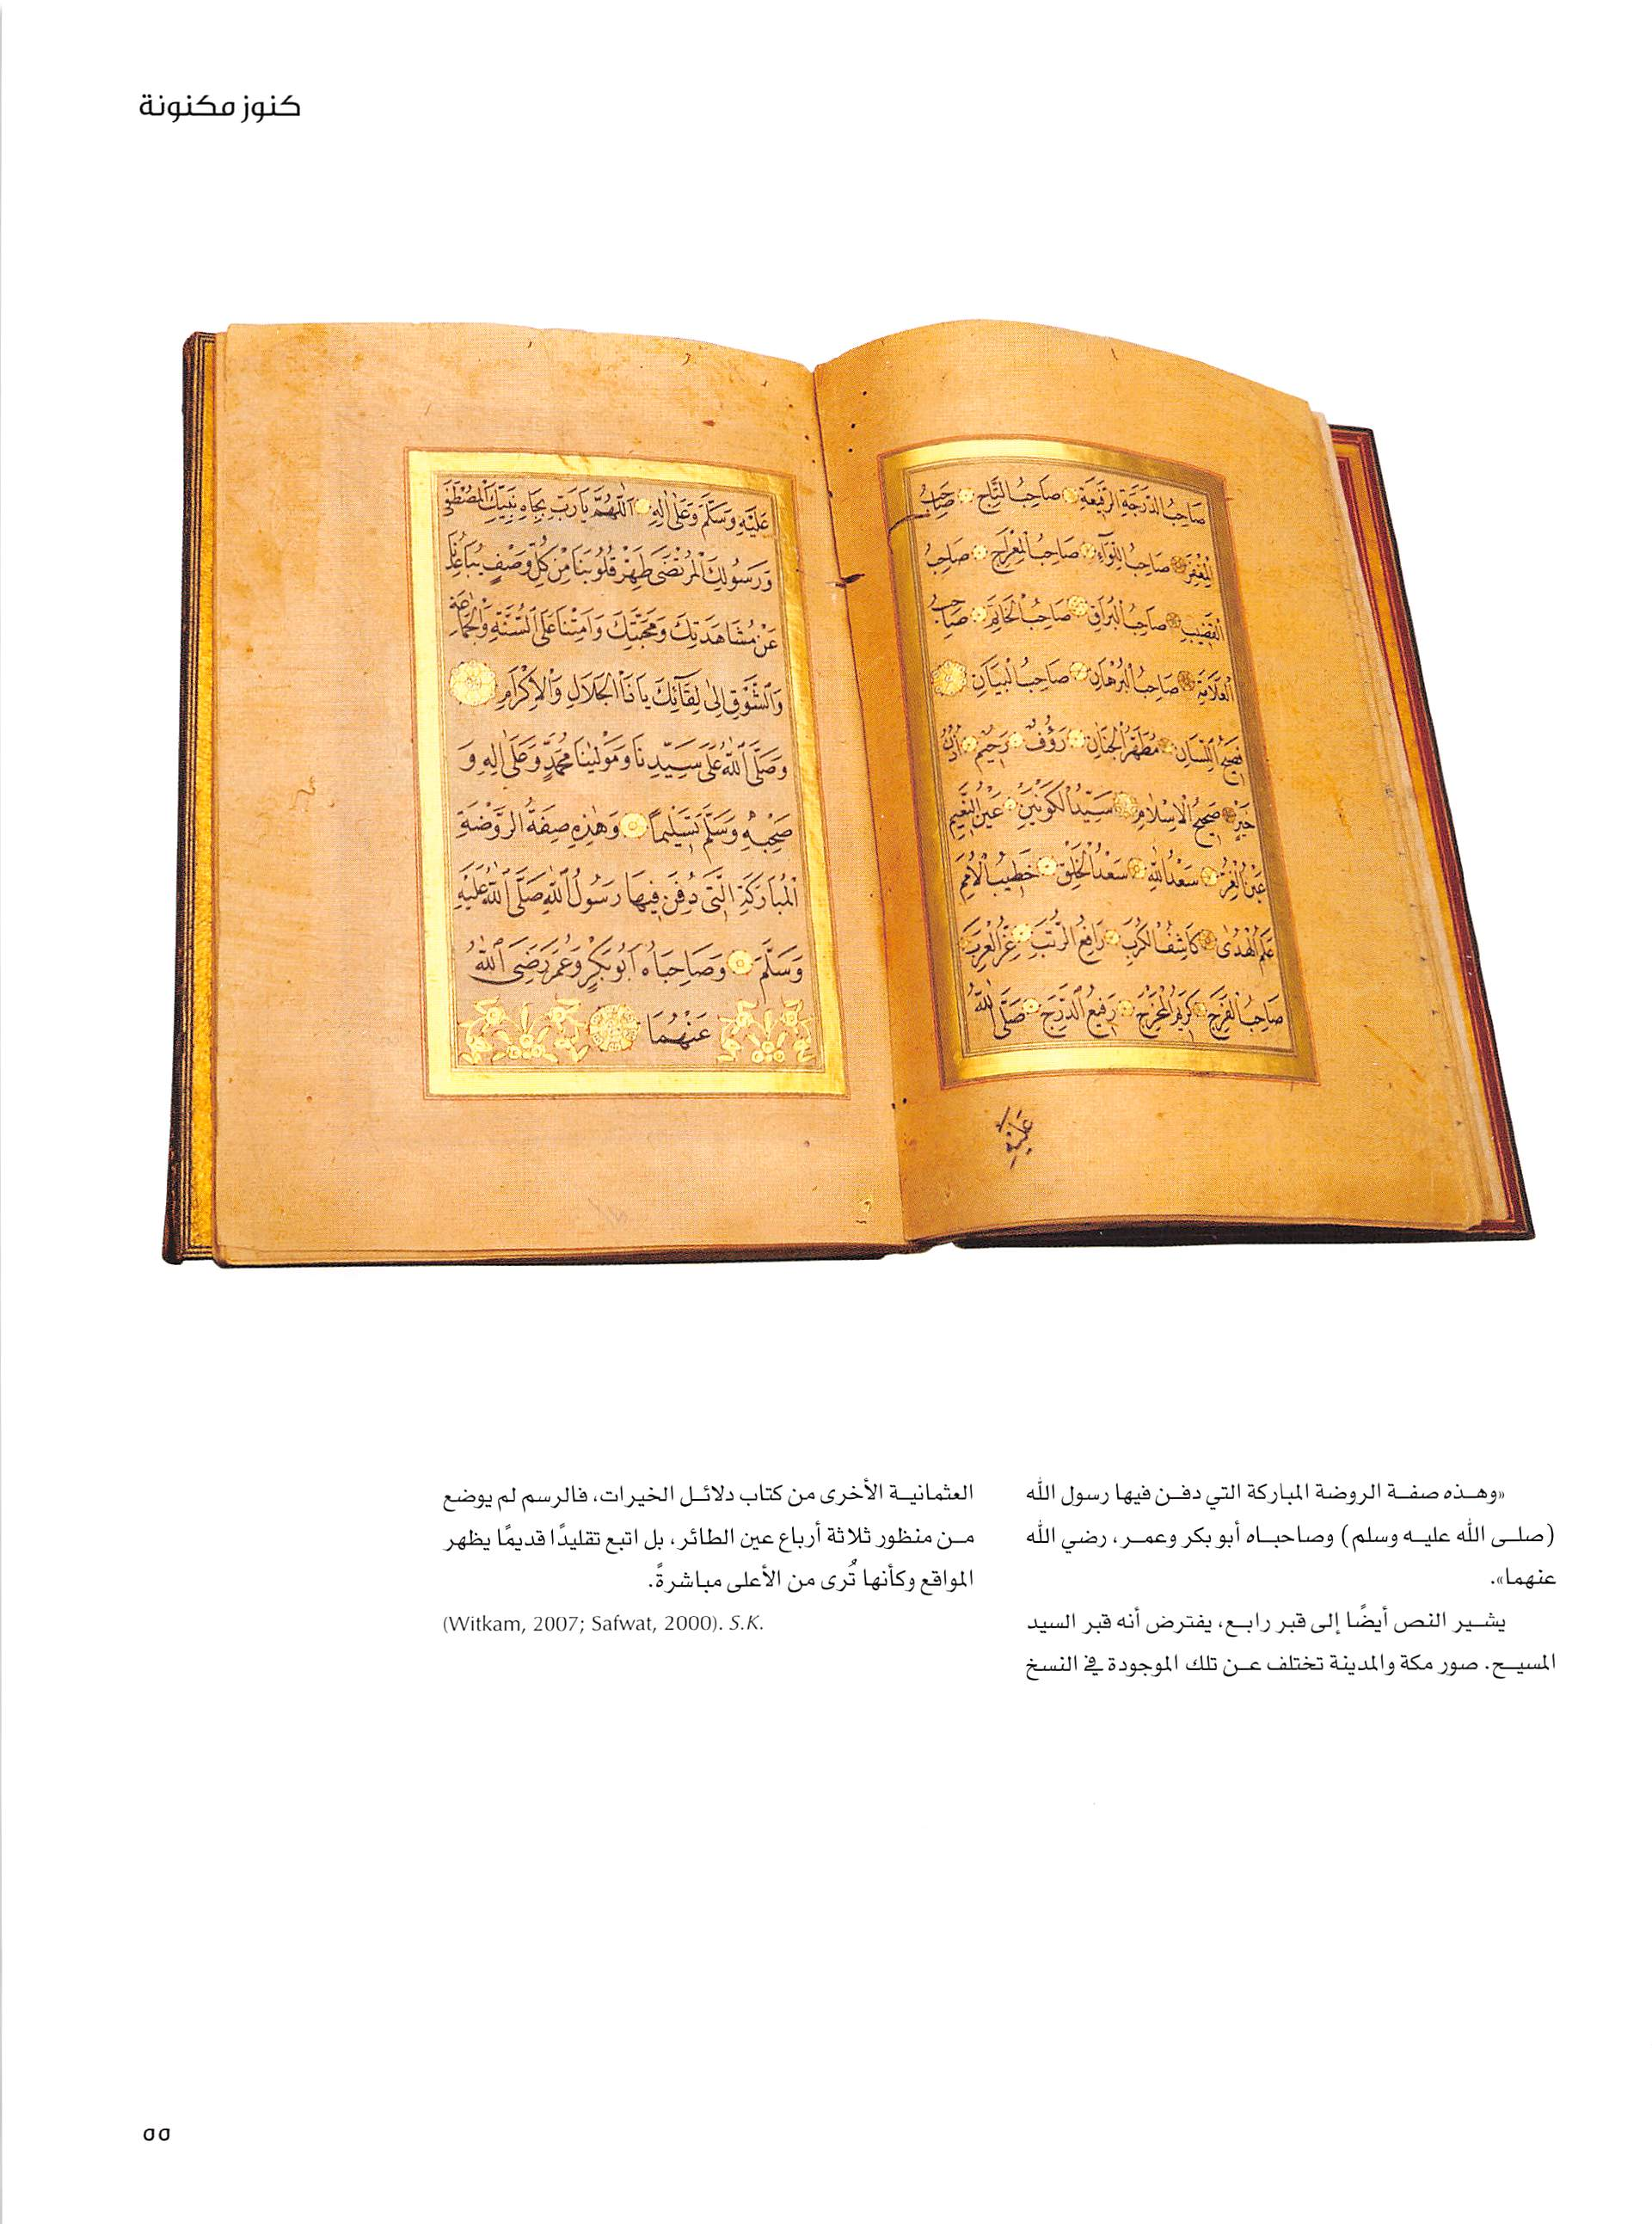 كنوز مكنونة
صَاحِبُ الدَّرَجَةِ الرَّفِيعَةِ صَاحِبُ التَّاجِ صَاحِبُ
الْمِغْفَرِ صَاحِبُ اللِّوَآءِ صَاحِبُ الْمِعْرَاجِ صَاحِبُ
الْقَضِيبِ صَاحِبُ الْبُرَاقِ صَاحِبُ الْخَاتَمِ صَاحِبُ
الْعَلَامَةِ صَاحِبُ الْبُرْهَانِ صَاحِبُ الْبَيَانِ
فَصِيحُ اللِّسَانِ مُطَهَّرُ الْجَنَانِ رَؤُفٌ رَحِيمٌ اُذُنُ
خَيْرٍ صَحِيحُ الْاِسْلَامِ سَيِّدُ الْكَوْنَيْنِ عَيْنُ النَّعِيمِ
عَيْنُ الْغُرِّ سَعْدُ اللّٰهِ سَعْدُ الْخَلْقِ خَطِيبُ الْاُمَمِ
عَلَمُ الْهُدٰى كَاشِفُ الْكُرَبِ رَافِعُ الرُّتَبِ عِزُّ الْعَرَبِ
صَاحِبُ الْفَرَجِ كَرِيمُ الْمَخْرَجِ رَفِيعُ الدَّرَجِ صَلَّى اللّٰهُ
عَلَيْهِ
عَلَيْهِ وَسَلَّمَ وَعَلٰى اٰلِهِ اَللّٰهُمَّ يَا رَبِّ بِجَاهِ نَبِيِّكَ الْمُصْطَفٰى
وَرَسُولِكَ الْمُرْتَضٰى طَهِّرْ قُلُوبَنَا مِنْ كُلِّ وَصْفٍ يُبَاعِدُنَا
عَنْ مُشَاهَدَتِكَ وَمَحَبَّتِكَ وَاَمِتْنَا عَلَى السُّنَّةِ وَالْجَمَاعَةِ
وَالشَّوْقِ اِلٰى لِقَآئِكَ يَا ذَا الْجَلَالِ وَالْاِكْرَامِ
وَصَلَّى اللّٰهُ عَلٰى سَيِّدِنَا وَمَوْلٰينَا مُحَمَّدٍ وَعَلٰى اٰلِهِ وَ
صَحْبِهِ وَسَلَّمَ تَسْلِيمًا وَهٰذِهِ صِفَةُ الرَّوْضَةِ
الْمُبَارَكَةِ الَّتِى دُفِنَ فِيهَا رَسُولُ اللّٰهِ صَلَّى اللّٰهُ عَلَيْهِ
وَسَلَّمَ وَصَاحِبَاهُ اَبُو بَكْرٍ وَعُمَرَ رَضِىَ اللّٰهُ
عَنْهُمَا
«وهذه صفة الروضة المباركة التي دفن فيها رسول الله
(صلى الله عليه وسلم) وصاحباه أبو بكر وعمر، رضي الله
عنهما».
يشير النص أيضًا إلى قبر رابع، يفترض أنه قبر السيد
المسيح. صور مكة والمدينة تختلف عن تلك الموجودة في النسخ
العثمانية الأخرى من كتاب دلائل الخيرات، فالرسم لم يوضع
من منظور ثلاثة أرباع عين الطائر، بل اتبع تقليدًا قديمًا يظهر
المواقع وكأنها تُرى من الأعلى مباشرةً.
(Witkam, 2007; Safwat, 2000). S.K.
٥٥